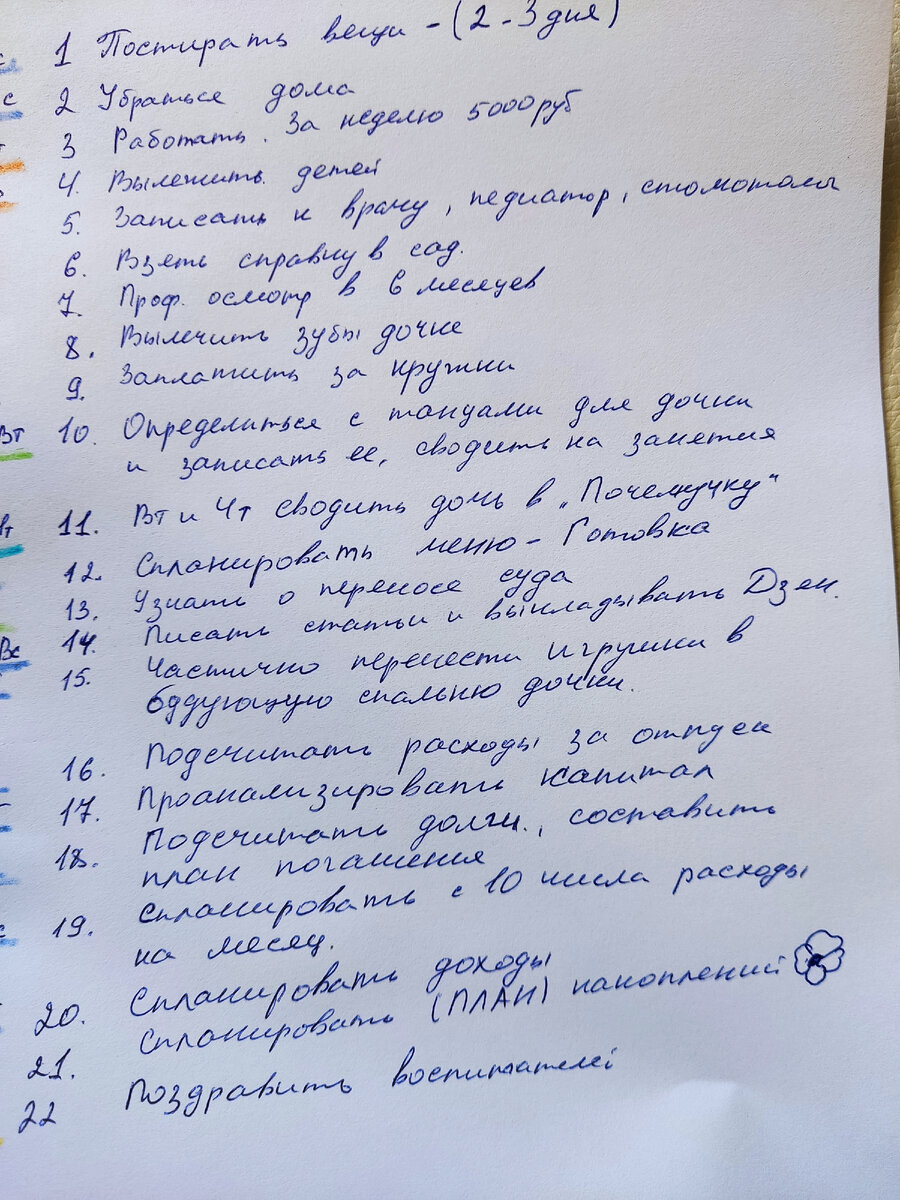 1 Постирать вещи - (2 - 3 дня)
2 Убраться дома
3 Работать. За неделю 5000 руб
4. Вылечить детей
5. Записать к врачу, педиатор, стомотолог
6. Взять справку в сад.
7. Проф. осмотр в 6 месяцев
8. Вылечить зубы дочке
9. Заплатить за кружки
Вт 10. Определиться с танцами для дочки
и записать ее, сводить на занятия
Вт 11. Вт и Чт сводить дочь в "Почемучку"
12. Спланировать меню - Готовка
13. Узнать о переносе суда
14. Писать статьи и выкладывать Дзен.
Вс 15. Частично перенести игрушки в
будующую спальню дочки.
16. Подсчитать расходы за отпуск
17. Проанализировать капитал
18. Подсчитать долги., составить
план погашения
19. Спланировать с 10 числа расходы
на месяц.
20. Спланировать доходы
21. Спланировать (ПЛАН) накоплений
22 Поздравить воспитателей